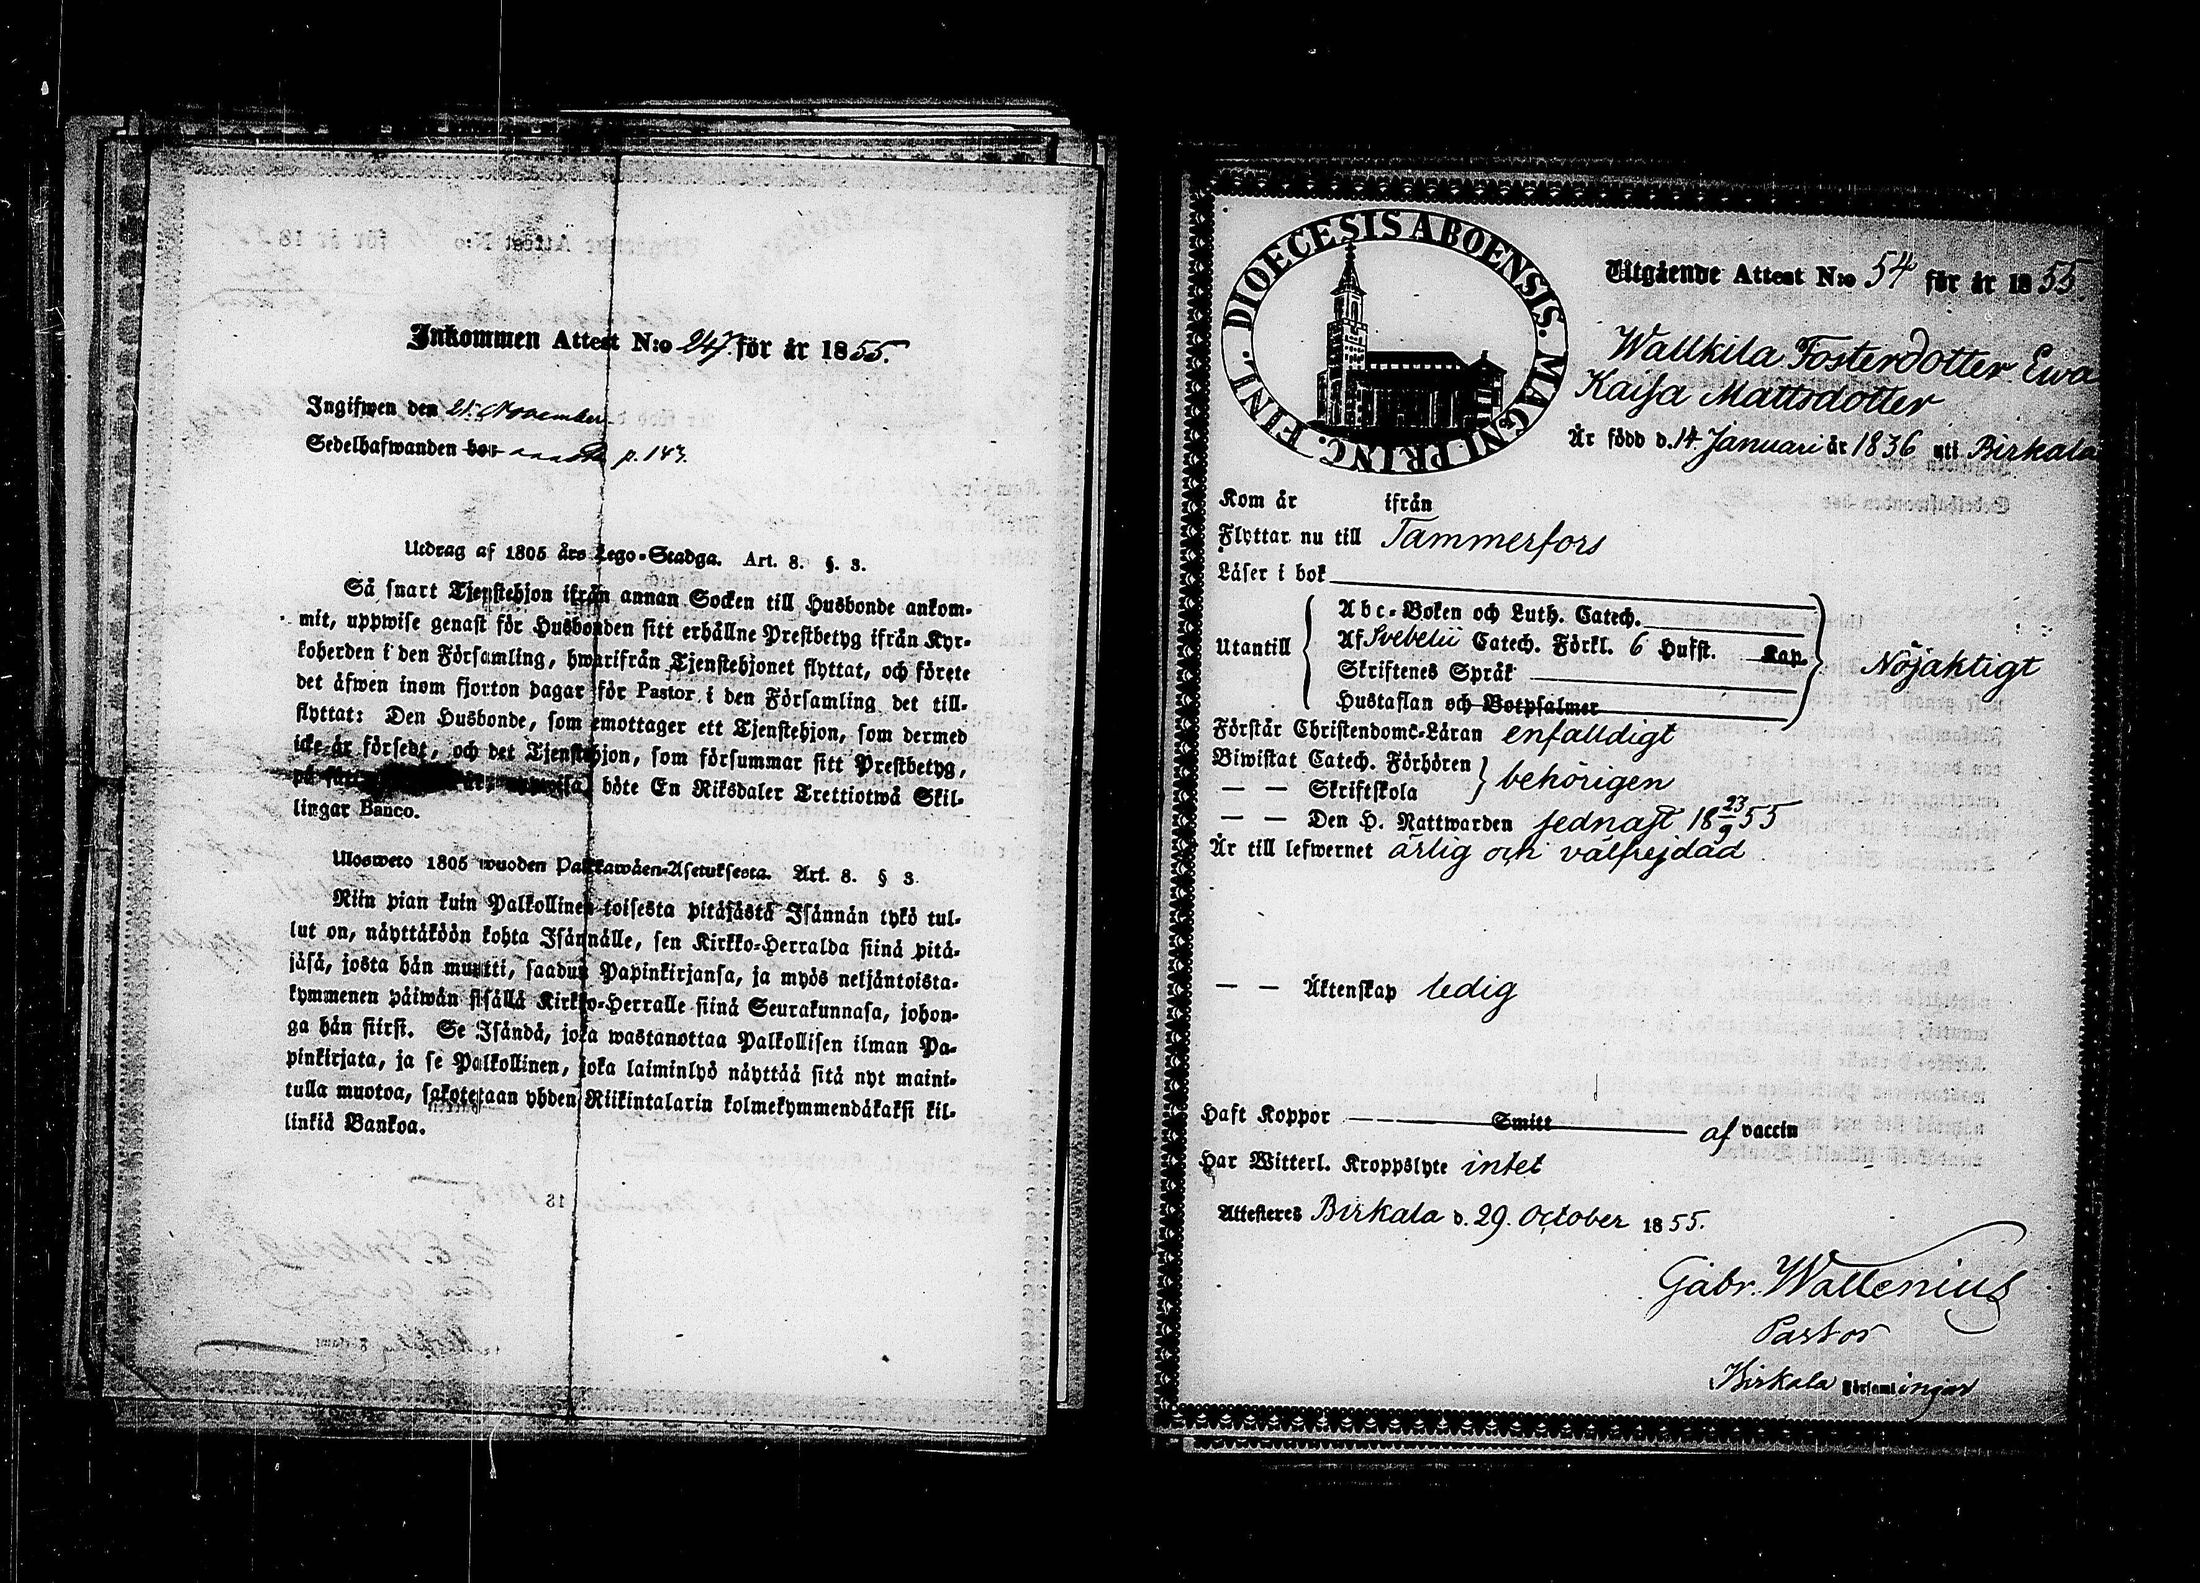 Inkommen Attest N:o 247. för år 1855.
Ingifwen den 21. November
Sedelhafwanden bor p. 143.
Utdrag af 1805 års Lego-Stadga. Art. 8. §. 3.
Så snart Tjenstehjon ifrån annan Socken till Husbonde ankom-
mit, uppwise genast för Husbonden sitt erhållne Prestbetyg ifrån Kyr-
koherden i den Församling, hwarifrån Tjenstehjonet flyttat, och förete
det äfwen inom fjorton dagar för Pastor i den Församling det till-
flyttat: Den Husbonde, som emottager ett Tjenstehjon, som dermed
icke är försedt, och det Tjenstehjon, som försummar sitt Prestbetyg,
på sätt böte En Riksdaler Trettiotwå Skil-
lingar Banco.
Ulosweto 1805 wuoden Palkkawäen-Asetuksesta. Art. 8. § 3.
Niin pian kuin Palkollinen toisesta pitäjästä Isännän tykö tul-
lut on, näyttäköön kohta Isännälle, sen Kirkko-Herralda siinä pitä-
jäsä, josta hän muutti, saadun Papinkirjansa, ja myös neljäntoista-
kymmenen päiwän sisällä Kirkko-Herralle siinä Seurakunnasa, johon-
ga hän siirsi. Se Isändä, joka wastanottaa Palkollisen ilman Pa-
pinkirjata, ja se Palkollinen, joka laiminlyö näyttää sitä nyt maini-
tulla muotoa, sakotetaan yhden Riikintalarin kolmekymmendäkaksi kil-
linkiä Bankoa.
DIOECESIS ABOENSIS. MAGNI PRINC. FINL.
Utgående Attest N:o 54 för år 1855.
Wallkila Fosterdotter Ewa
Kaisa Mattsdotter
Är född d. 14 Januari år 1836 uti Birkala
Kom år ifrån
Flyttar nu till Tammerfors
Läser i bok
Utantill
Abc-Boken och Luth. Catech.
Af Svebelii Catech. Förkl. 6 Hufst. Kap.
Skriftenes Språk
Hustaflan och Botpsalmer
Nöjaktigt
Förstår Christendoms-Läran enfalldigt
Biwistat Catech. Förhören
— — Skriftskola
behörigen
— — Den H. Nattwarden sednast 18 23/9 55
Är till lefwernet ärlig och välfrejdad
— — Äktenskap ledig
Haft Koppor Smitt af vaccin
Har Witterl. Kroppslyte intet
Attesteres Birkala d. 29. October 1855.
Gabr. Wallenius
Pastor
Birkala Församlingar